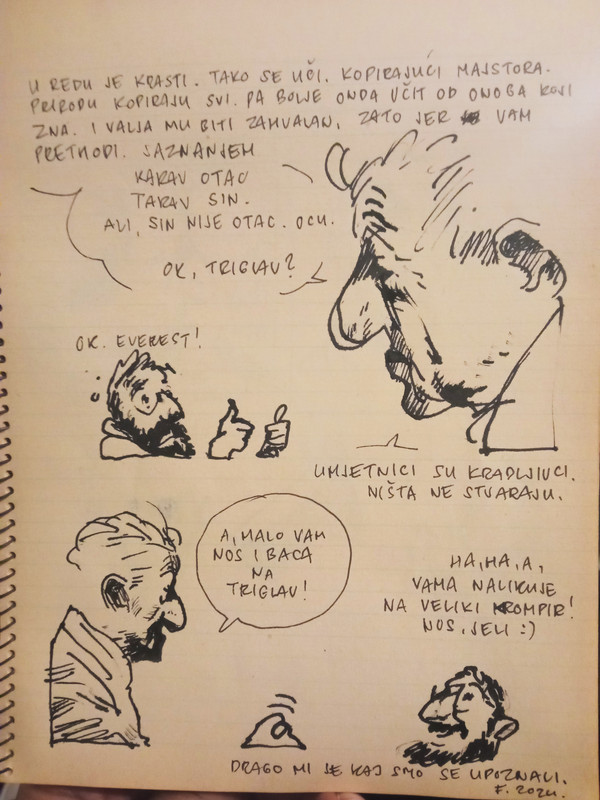 U REDU JE KRASTI. TAKO SE UČI. KOPIRAJUĆI MAJSTORA.
PRIRODU KOPIRAJU SVI. PA BOLJE ONDA UČIT OD ONOGA KOJI
ZNA. I VALJA MU BITI ZAHVALAN, ZATO JER VAM
PRETHODI. SAZNANJEM
KAKAV OTAC
TAKAV SIN.
ALI, SIN NIJE OTAC. OCU.
OK, TRIGLAV?
OK. EVEREST!
UMJETNICI SU KRADLJIVCI.
NIŠTA NE STVARAJU.
A, MALO VAM
NOS I BACA
NA
TRIGLAV!
HA, HA, A,
VAMA NALIKUJE
NA VELIKI KROMPIR!
NOS, JELI :)
DRAGO MI JE KAJ SMO SE UPOZNALI.
F. 2024.